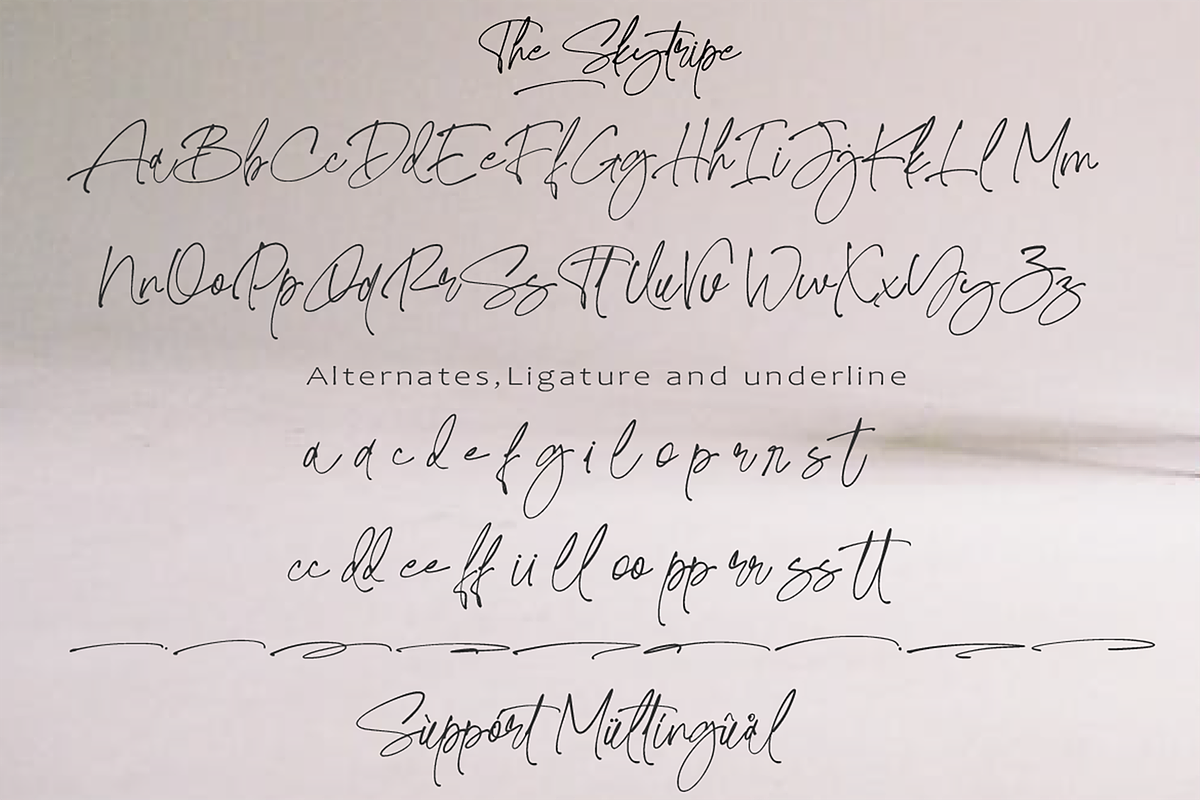 The Skytripe
AaBbCcDdEeFfGgHhIiJjKkLlMm
NnOoPpQqRrSsTtUuVvWwXxYyZz
Alternates,Ligature and underline
a a c d e f g i l o p r r s t
cc dd ee ff ii ll oo pp rr ss tt
Sùppórt Mültingûål